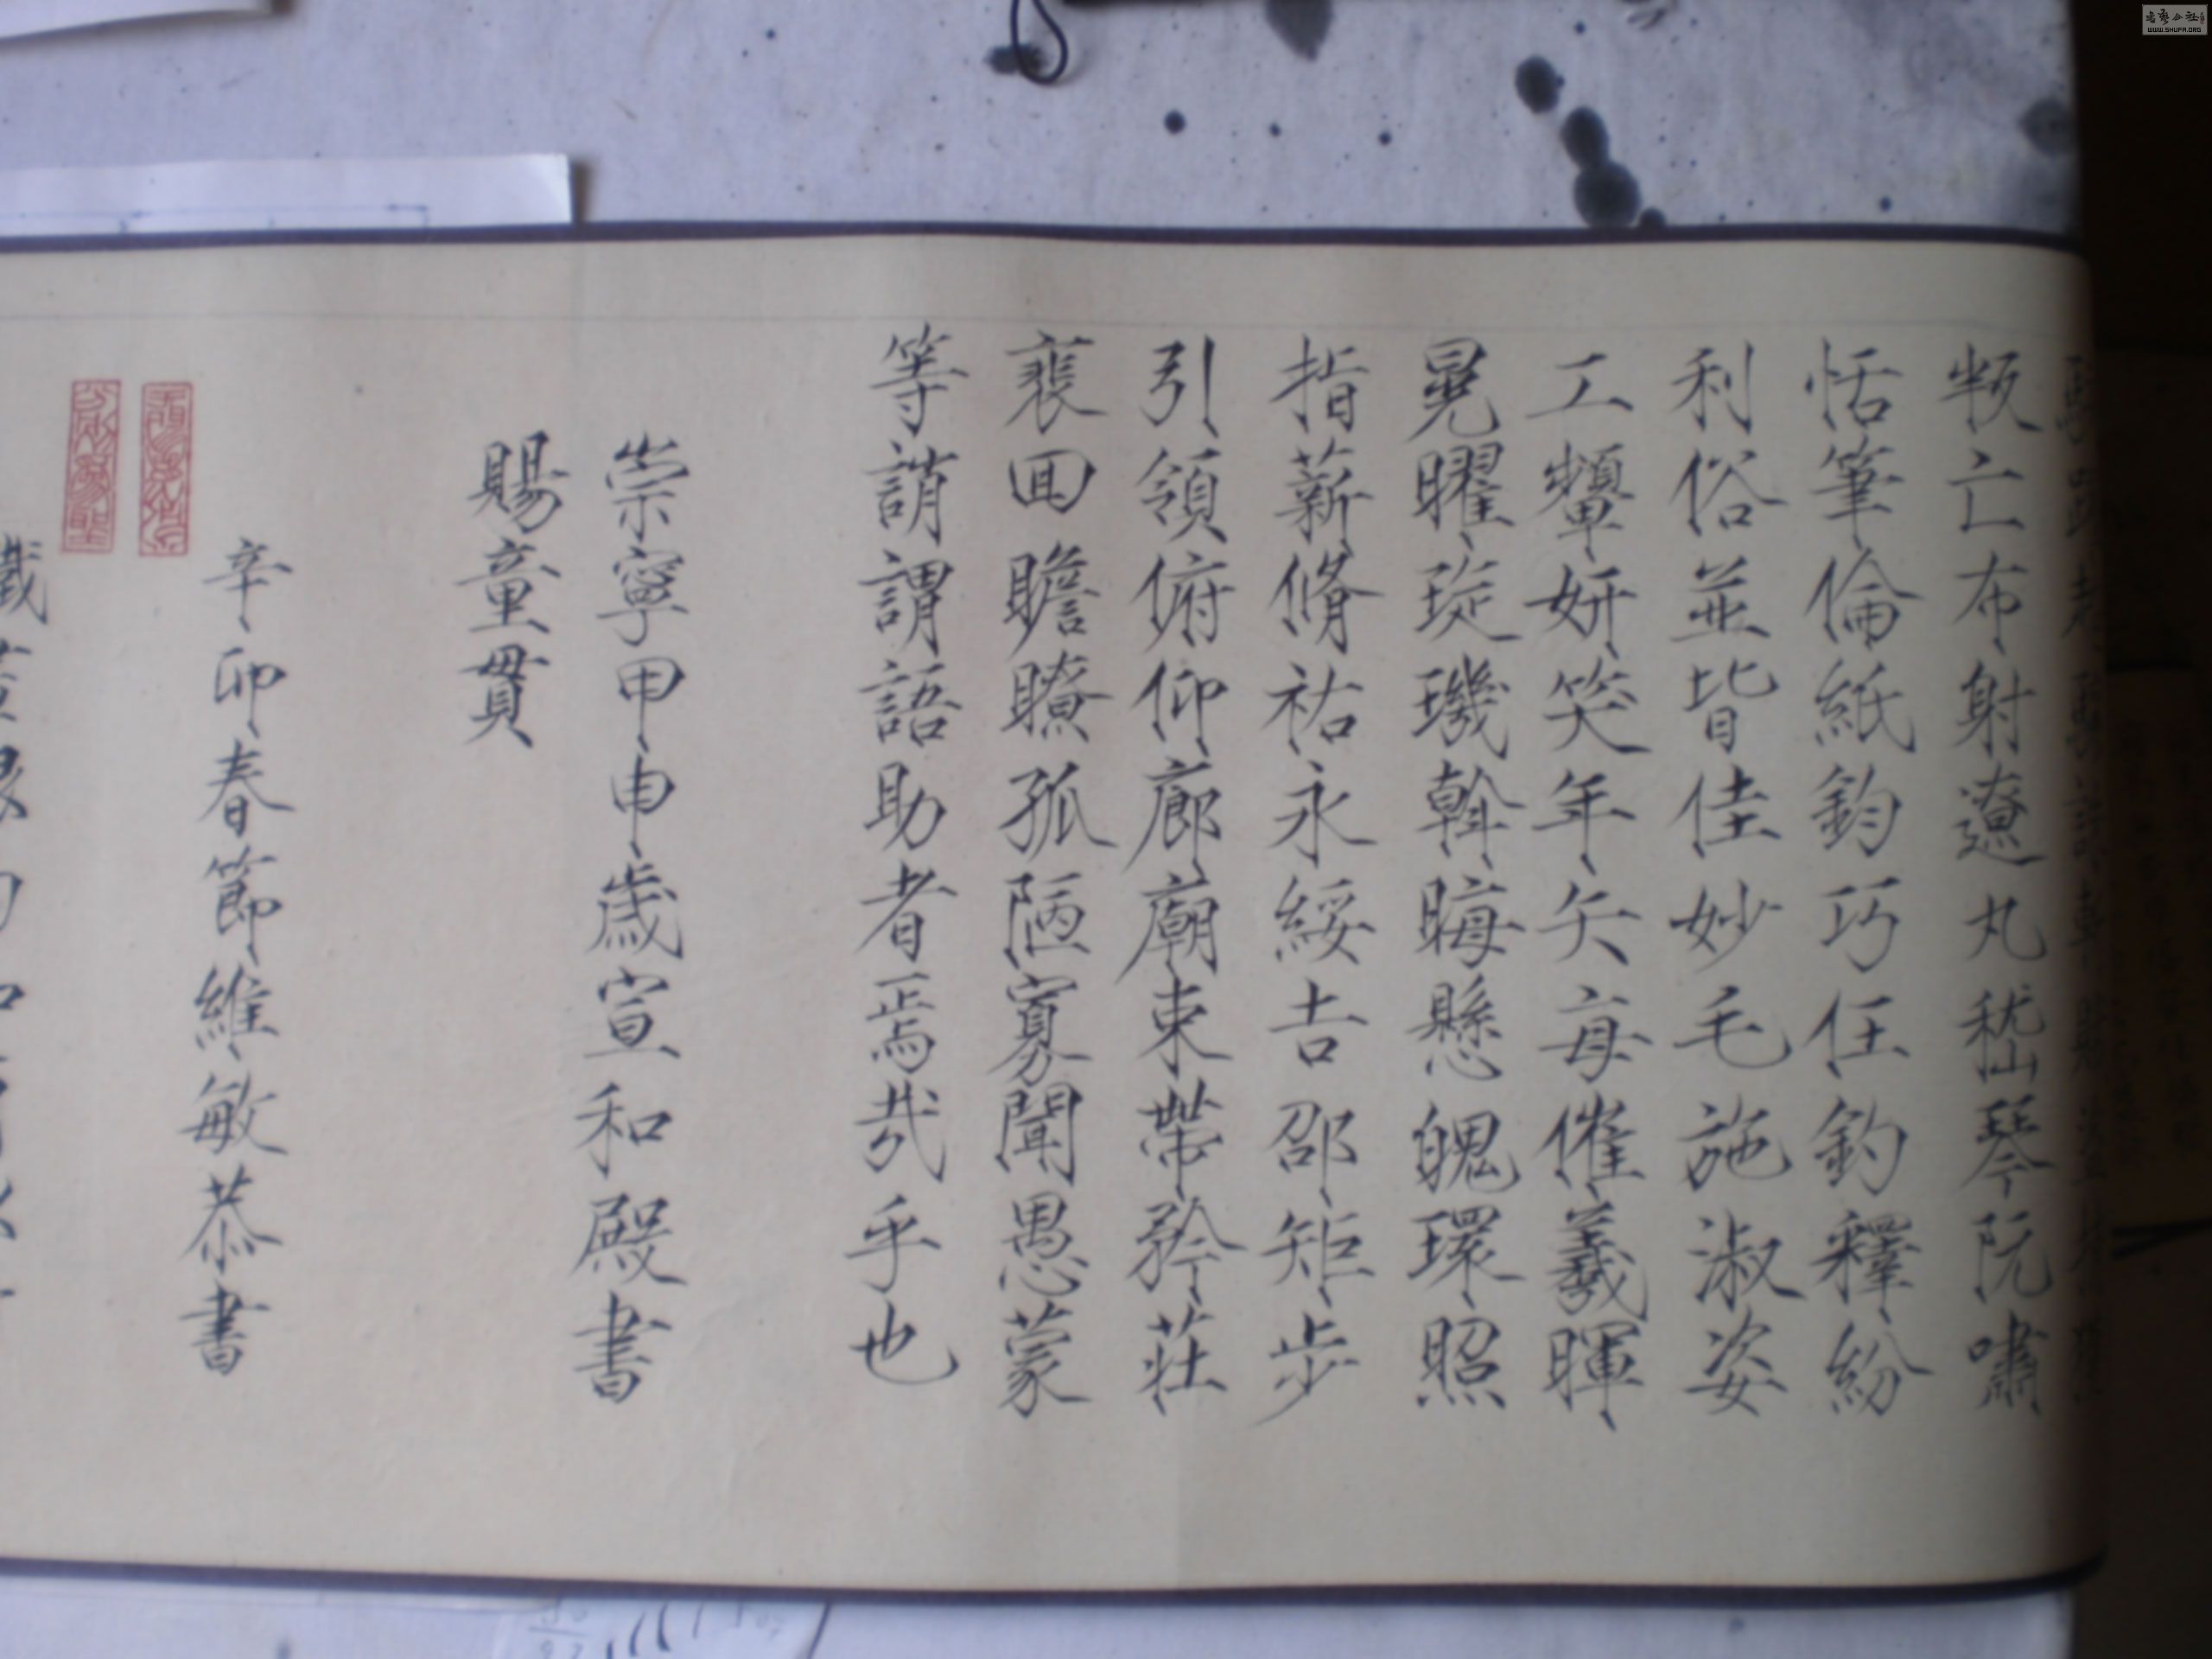 叛亡布射遼丸嵇琴阮嘯
恬筆倫紙鈞巧任釣釋紛
利俗並皆佳妙毛施淑姿
工顰妍笑年矢每催羲暉
晃曜琁璣斡晦懸魄環照
指薪脩祐永綏吉邵矩步
引領俯仰廊廟束帶矜莊
裴回瞻瞭孤陋寡聞愚蒙
等誚謂語助者焉哉乎也
崇寧甲申歲宣和殿書
賜童貫
辛卯春節維敏恭書
WWW.SHUFA.ORG